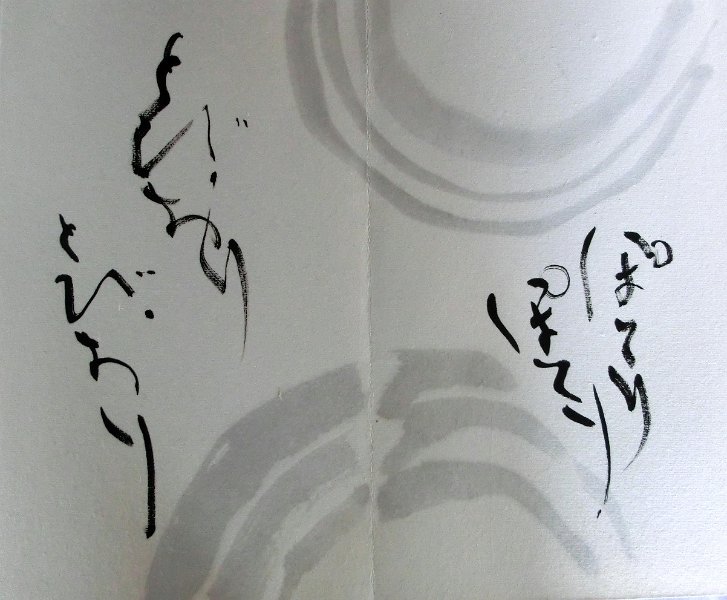 ぽてり
ぽてり
とびおり
とびおり